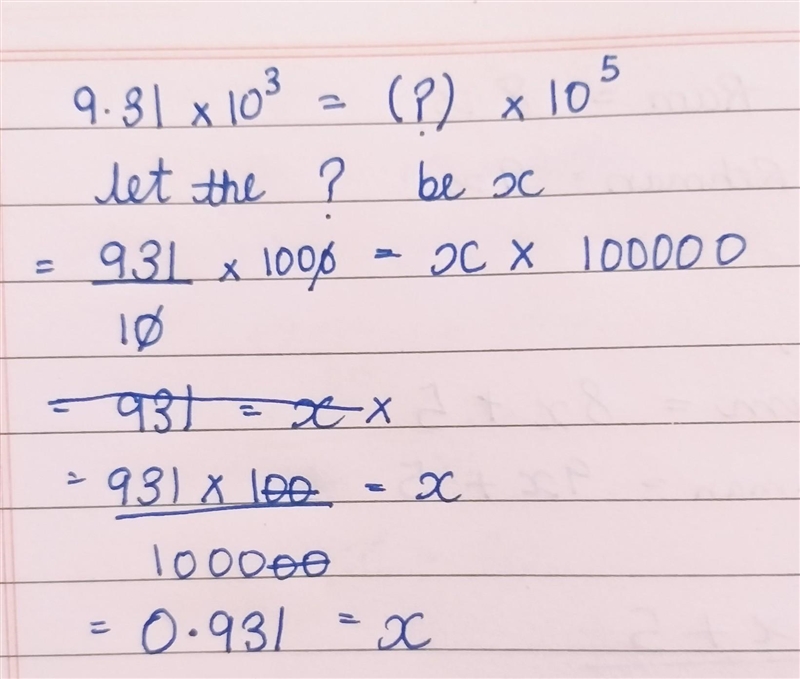 9.31 × 10³ = (?) × 10⁵
let the ? be x
= 931/10 × 1000 = x × 100000
= 931 = x ×
= 931 × 100/100000 = x
= 0.931 = x